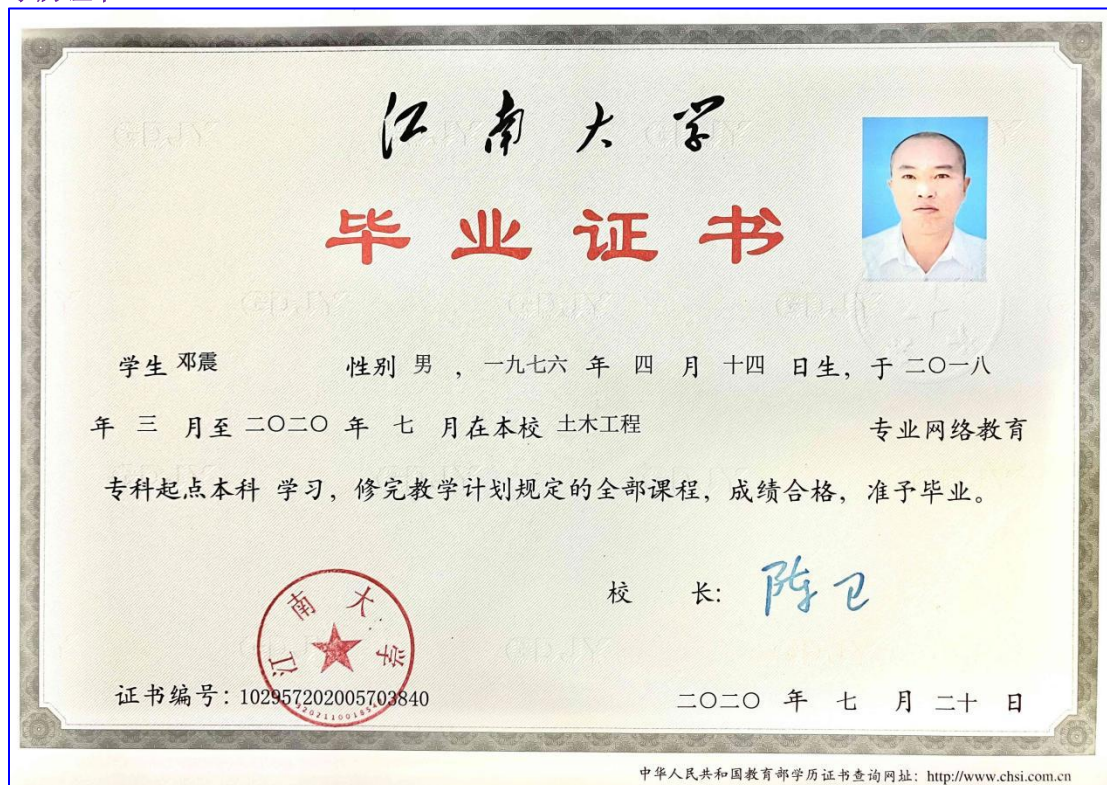 江南大学
毕业证书
学生 邓震 性别 男 ，一九七六 年 四 月 十四 日生，于 二〇一八
年 三 月至 二〇二〇 年 七 月在本校 土木工程 专业网络教育
专科起点本科 学习，修完教学计划规定的全部课程，成绩合格，准予毕业。
校 长：陈卫
江南大学
证书编号：102957202005703840
二〇二〇 年 七 月 二十 日
中华人民共和国教育部学历证书查询网址：http://www.chsi.com.cn